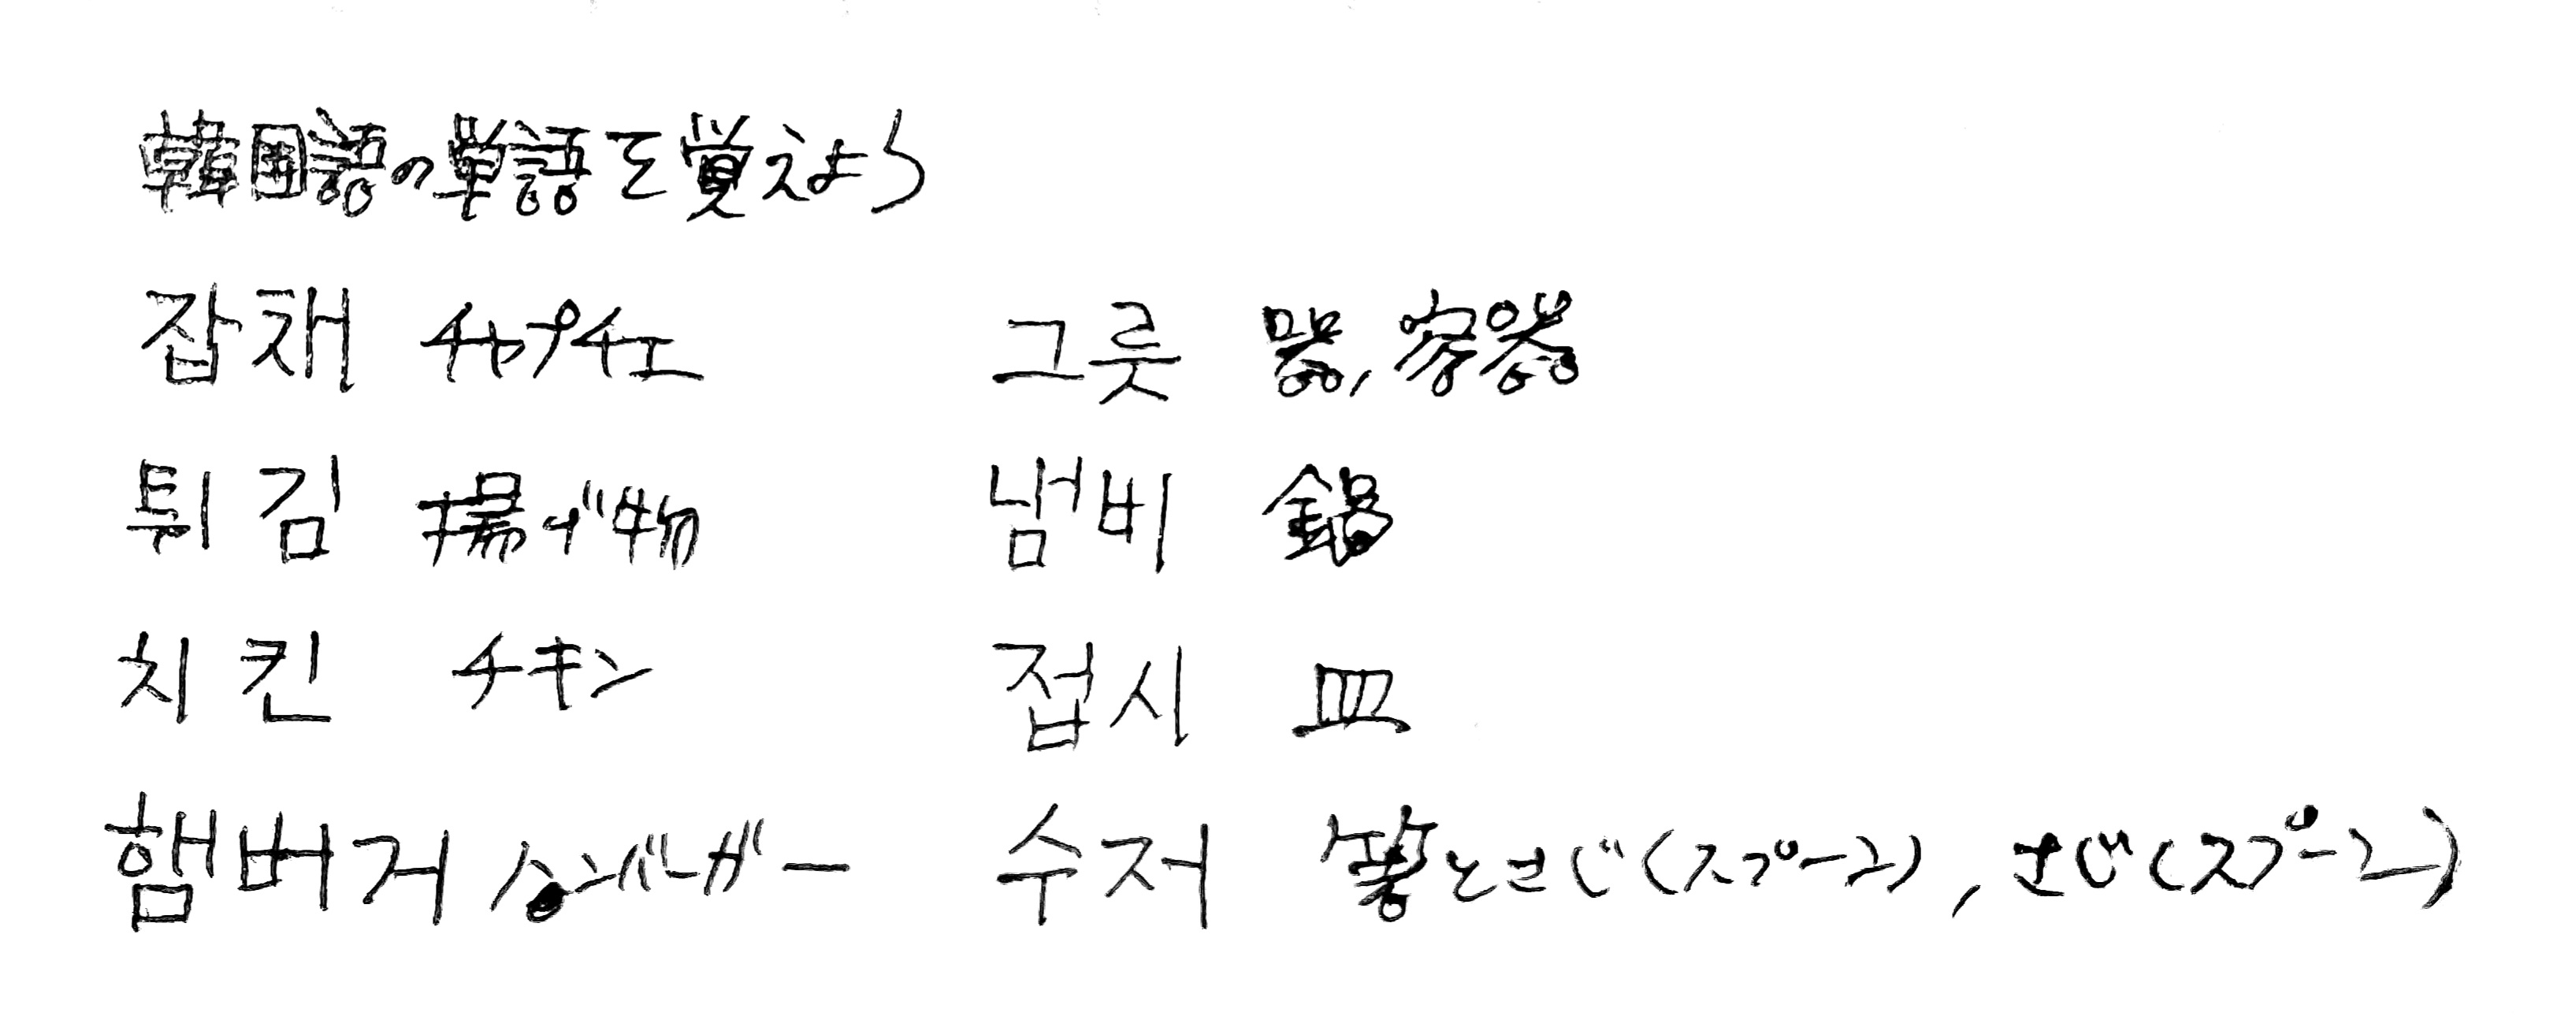 韓国語の単語を覚えよう
잡채 チャプチェ 그릇 器,容器
튀김 揚げ物 냄비 鍋
치킨 チキン 접시 皿
햄버거 ハンバーガー 수저 箸とさじ(スプーン),さじ(スプーン)